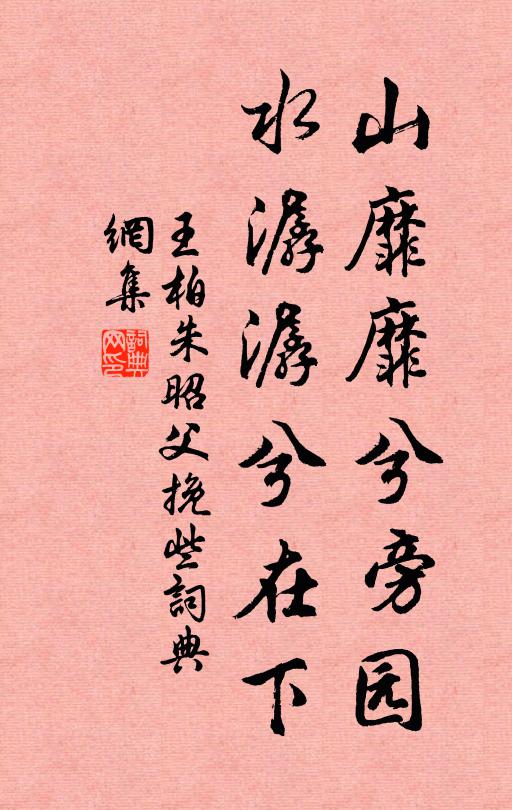 山靡靡兮旁园
水潺潺兮在下
王柏朱昭父挽些詞典
網集
詞典網印